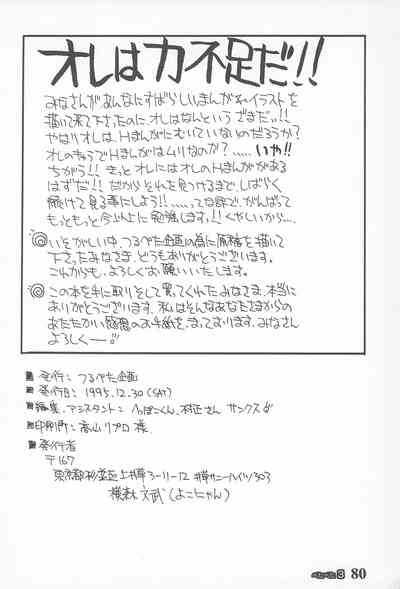 オレは力不足だ!!
みなさんがあんなにすばらしいまんがやイラストを
描いて来て下さったのに、オレはなんという ざまだッ!!
やはりオレは、Hまんがにむいていないのだろうか?
オレのキャラでHまんがはムリなのか?.....いや!!
ちがう!! きっと オレにはオレのHまんががある
はずだ!! だから それを見つけるまで、しばらく
続けて見る事にしよう!!...ってな訳で、がんばって
もっともっと今以上に勉強します。!! くやしいから...
◎いそがしい中、つるぺた企画の為に原稿を描いて
下さったみなさま、どうもありがとうございます。
これからも、よろしくお願いいたします。
◎この本を手に取りそして買ってくれたみなさま、本当に
ありがとうございます。私はそんなあなたさまからの
あたたかい感想のお手紙を、まっております。みなさん
よろしくー
発行: つるぺた企画
発行日: 1995.12.30(SAT)
編集.アシスタント: へっぽこくん、村正さん サンクス
印刷所: 高山リプロ 様
発行者
〒167
東京都杉並区上井草3-11-12 井草サニーハイツ303
横森 文武(よこにゃん)
ぺたぺた3 80